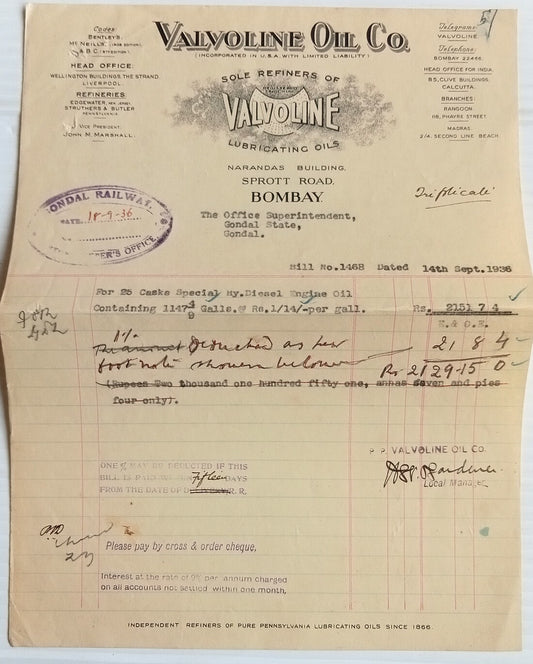 VALVOLINE OIL CO.
(INCORPORATED IN U.S.A. WITH LIMITED LIABILITY)
Codes:
BENTLEY'S,
McNEILL'S, (1908 EDITION),
A B C (5TH EDITION)
HEAD OFFICE:
WELLINGTON BUILDINGS, THE STRAND,
LIVERPOOL.
REFINERIES:
EDGEWATER, NEW JERSEY.
STRUTHERS & BUTLER
PENNSYLVANIA
Vice President:
JOHN M. MARSHALL.
SOLE REFINERS OF
REGISTERED
TRADE MARK
VALVOLINE
LUBRICATING OILS
NARANDAS BUILDING,
SPROTT ROAD,
BOMBAY.
Telegrams:
VALVOLINE.
Telephone:
BOMBAY 22466.
HEAD OFFICE FOR INDIA:
B5, CLIVE BUILDINGS,
CALCUTTA.
BRANCHES:
RANGOON
118, PHAYRE STREET.
MADRAS.
2/4, SECOND LINE BEACH.
Triplicate
GONDAL RAILWAY
DATE 18-9-36
OFFICE
The Office Superintendent,
Gondal State,
Gondal.
Bill No.1468 Dated 14th Sept.1936
For 25 Casks Special Hy.Diesel Engine Oil
Containing 1147 4/9 Galls.@ Rs.1/14/-per gall. Rs. 2151 7 4
E. & O.E.
1% deducted as per 21 8 4
foot note shown below Rs 2129-15 0
(Rupees Two thousand one hundred fifty one, annas seven and pies
four only).
P. P. VALVOLINE OIL CO.
Local Manager
ONE % MAY BE DEDUCTED IF THIS
BILL IS PAID WITHIN fifteen DAYS
FROM THE DATE OF R. R.
Please pay by cross & order cheque,
Interest at the rate of 9% per annum charged
on all accounts not settled within one month,
INDEPENDENT REFINERS OF PURE PENNSYLVANIA LUBRICATING OILS SINCE 1866.